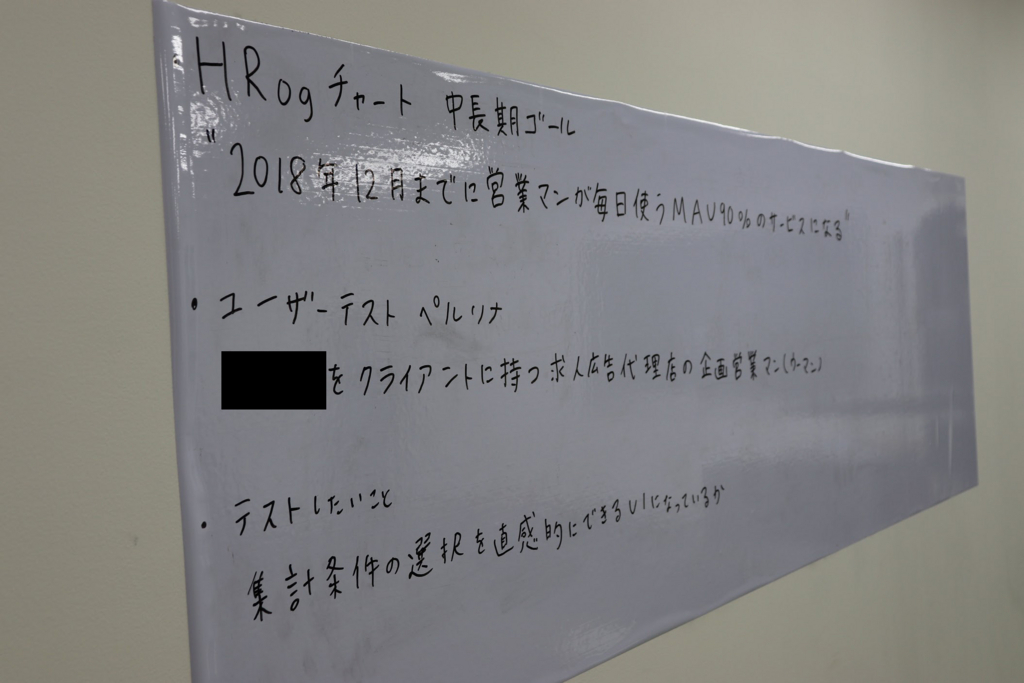 HRogチャート 中長期ゴール
"2018年12月までに営業マンが毎日使うMAU90%のサービスになる"
・ユーザーテスト ペルソナ
をクライアントに持つ求人広告代理店の企画営業マン(ウーマン)
・テストしたいこと
集計条件の選択を直感的にできるUIになっているか